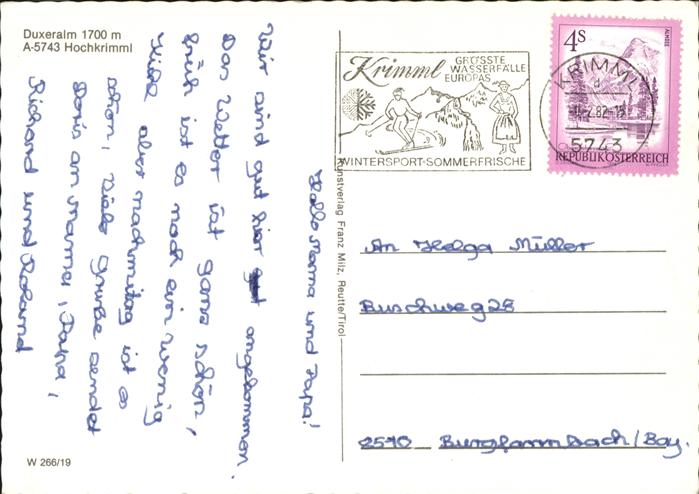 Duxeralm 1700 m
A-5743 Hochkrimml
Hallo Mama und Papa!
Wir sind gut hier angekommen.
Das Wetter ist ganz schön,
früh ist es noch ein wenig
kühl aber nachmittag ist es
schön, viele Grüße sendet
Doris an Mama, Papa,
Richard und Roland
W 266/19
Kunstverlag Franz Milz, Reutte/Tirol
Krimml GRÖSSTE
WASSERFÄLLE
EUROPAS
WINTERSPORT-SOMMERFRISCHE
4S
ALMSEE
REPUBLIK ÖSTERREICH
KRIMML
d
5743
An Helga Müller
Buschweg 28
8510 Burgfarrnbach/Bay.